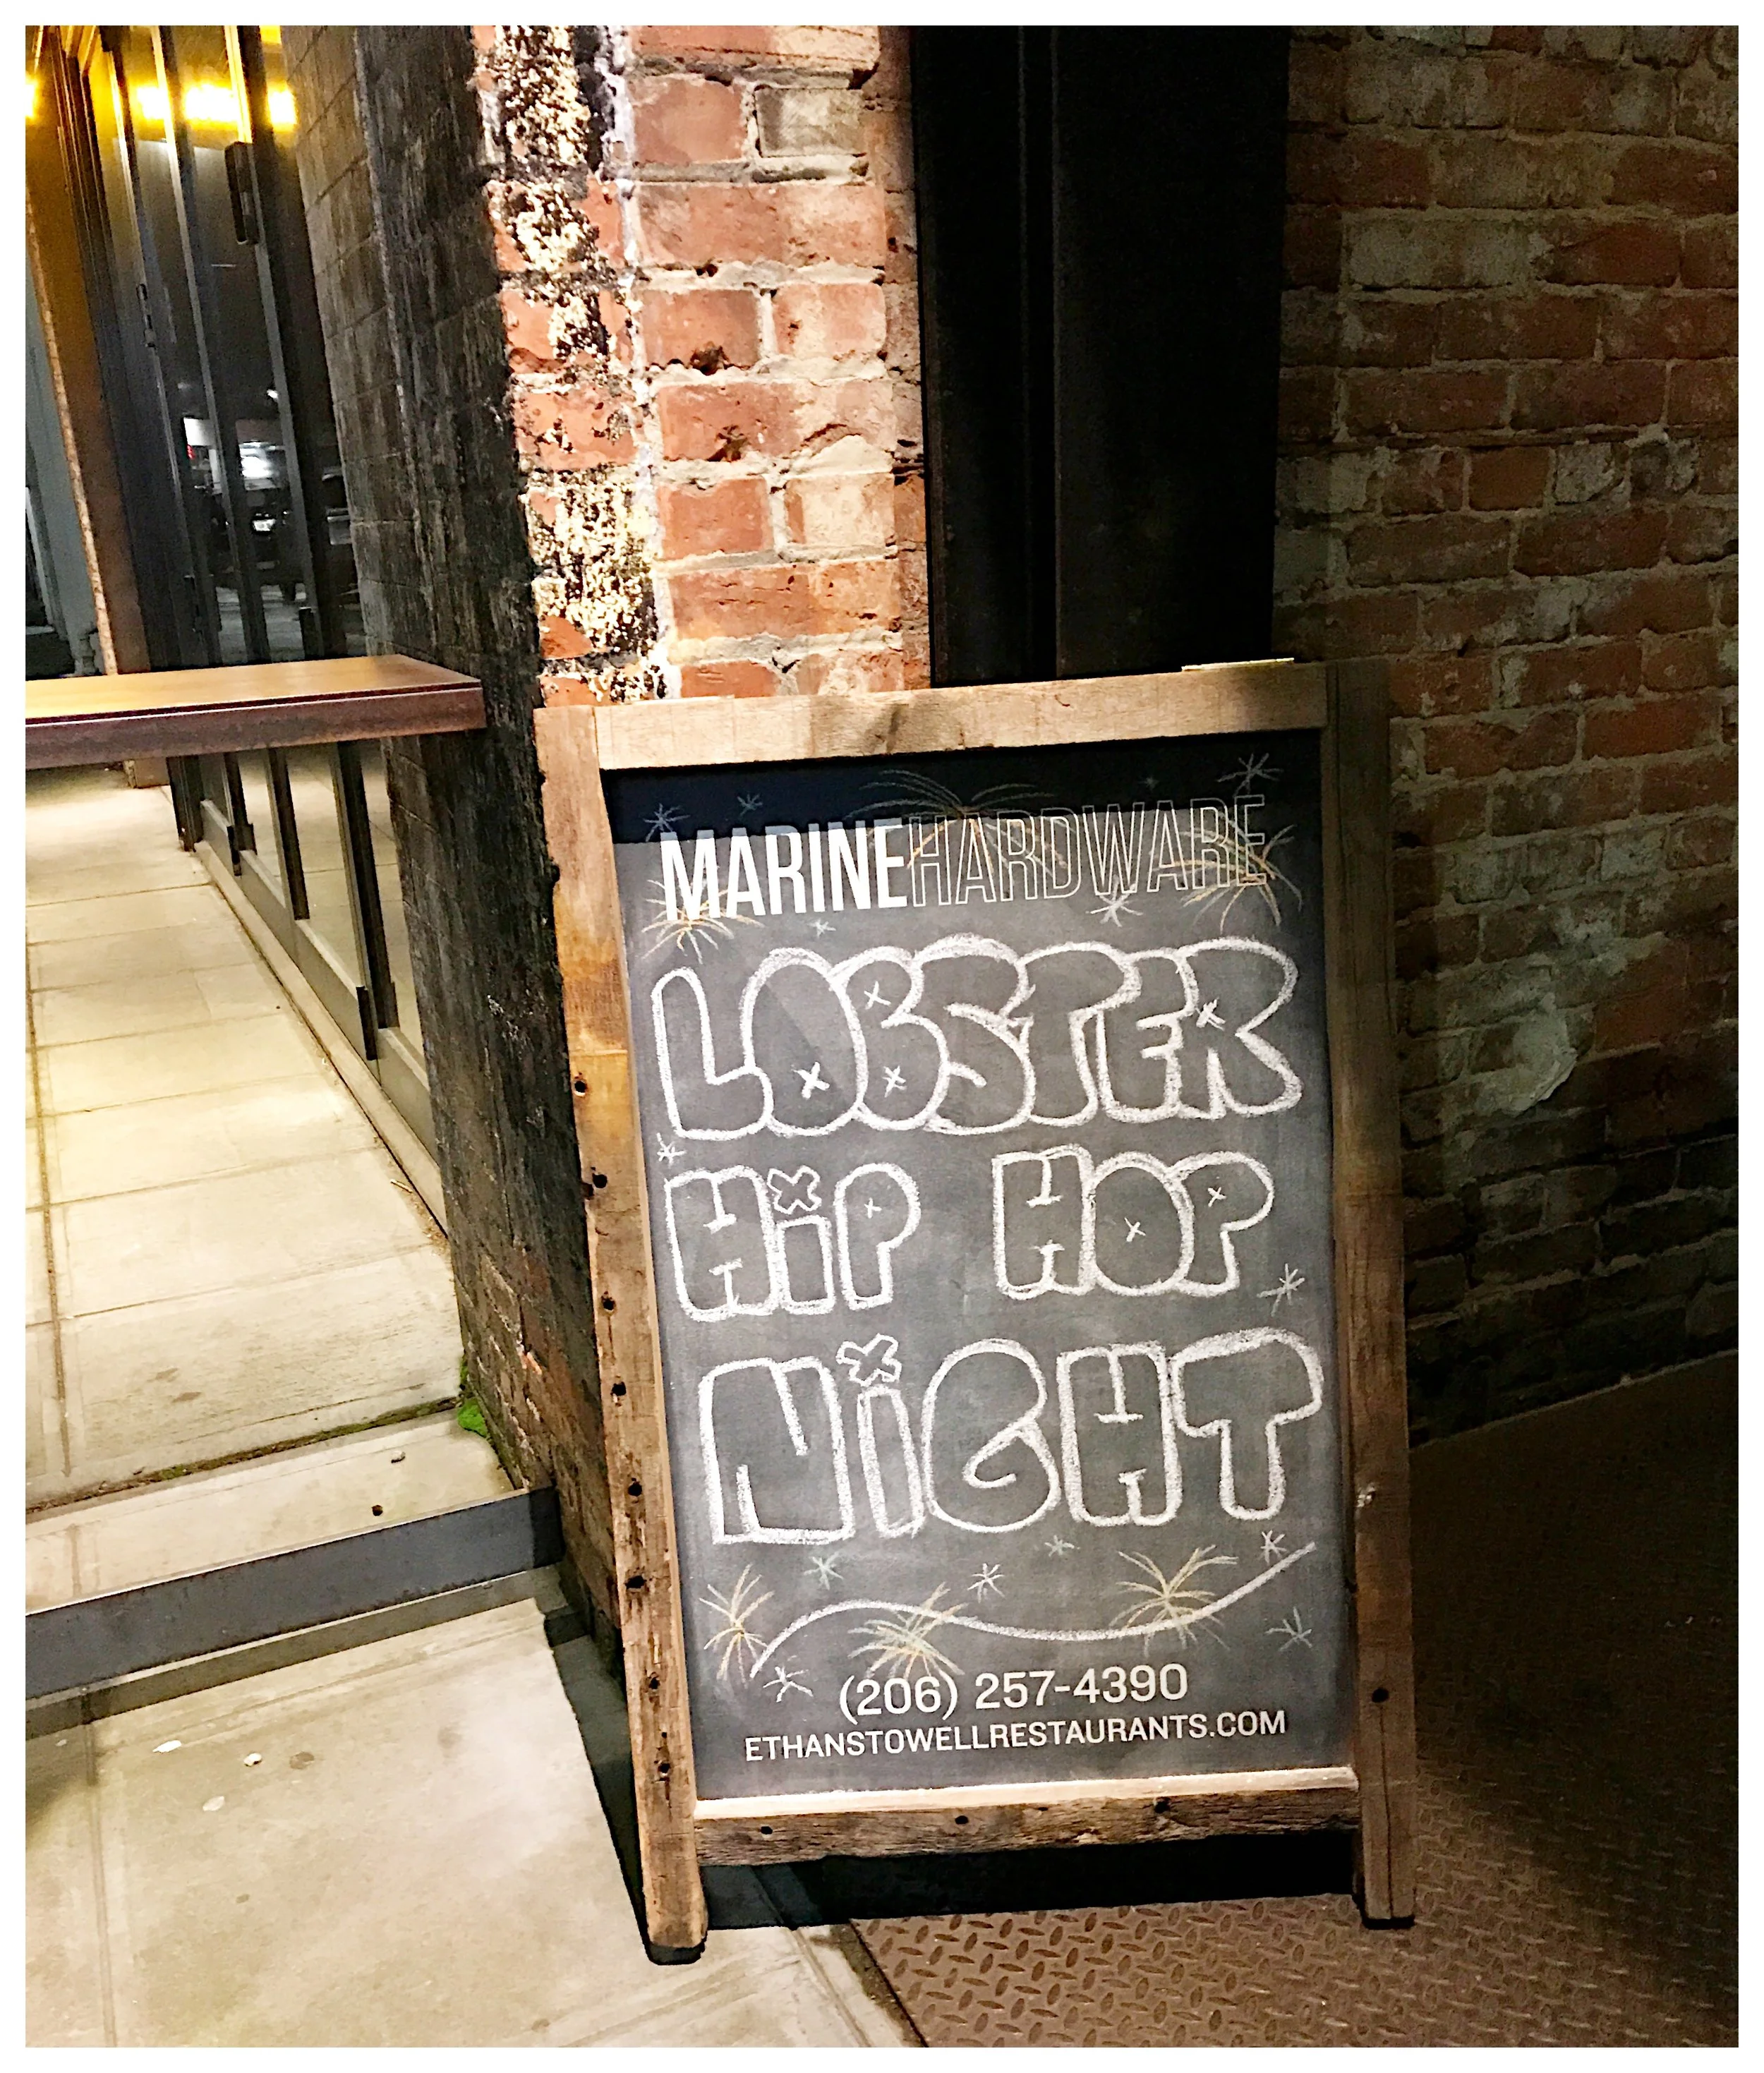 MARINEHARDWARE
LOBSTER
HiP HOP
NiGHT
(206) 257-4390
ETHANSTOWELLRESTAURANTS.COM